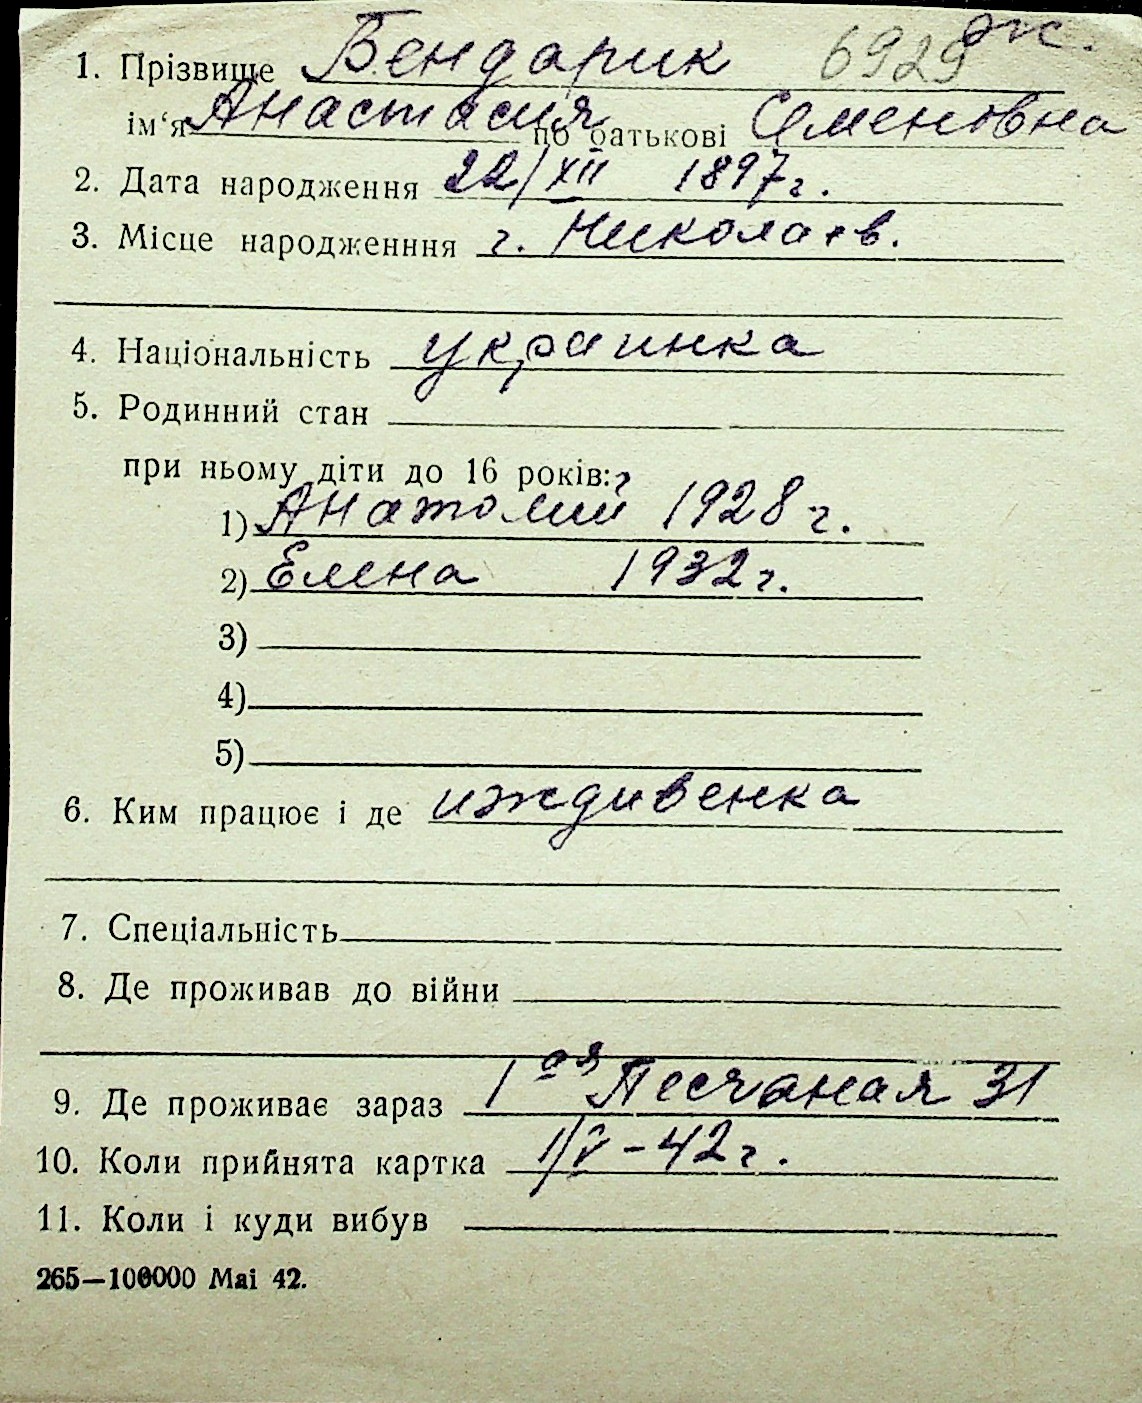 1. Прізвище Бендарик 6929 ж.
ім‘я Анастасия по батькові Семеновна
2. Дата народження 22/XII 1897 г.
3. Місце народженння г. Николаев.
4. Національність украинка
5. Родинний стан
при ньому діти до 16 років:
1) Анатолий 1928 г.
2) Елена 1932 г.
3)
4)
5)
6. Ким працює і де иждивенка
7. Спеціальність
8. Де проживав до війни
9. Де проживає зараз 1 ая Песчаная 31
10. Коли прийнята картка 1/V – 42 г.
11. Коли і куди вибув
265—100000 Маі 42.